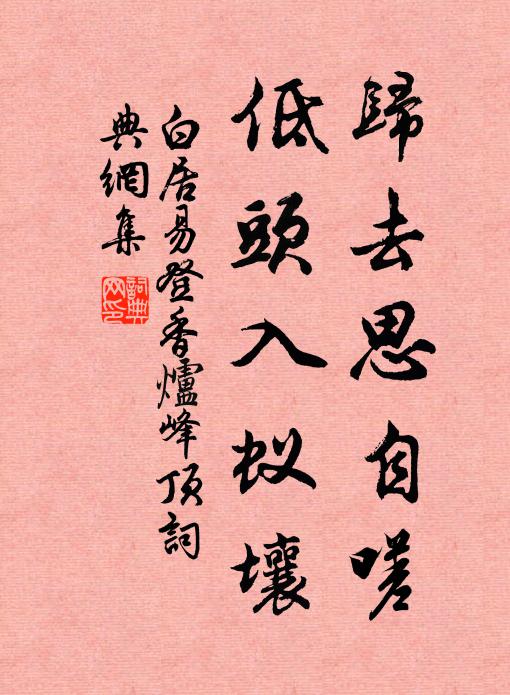 歸去思自嗟
低頭入蚁壤
白居易登香爐峰頂詞
典網集
詞典网印